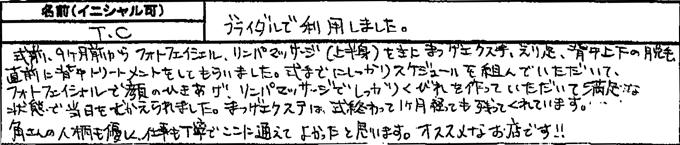 名前(イニシャル可)
T.C
ブライダルで利用しました。
式前、9ヶ月前から フォトフェイシャル、リンパマッサージ(上半身)をきに まつげエクステ、えり足、背中上下の脱毛、
直前に背中トリートメントをしてもらいました。式までにしっかりスケジュールを組んでいただいて、
フォトフェイシャルで顔のひきあげ、リンパマッサージでしっかりくびれを作っていただいて満足な
状態で当日をむかえられました。まつげエクステは、式終わって1ヶ月経っても残ってくれています。
角さんの人柄も優しく、仕事も丁寧でここに通えて よかったと思います。オススメなお店です!!